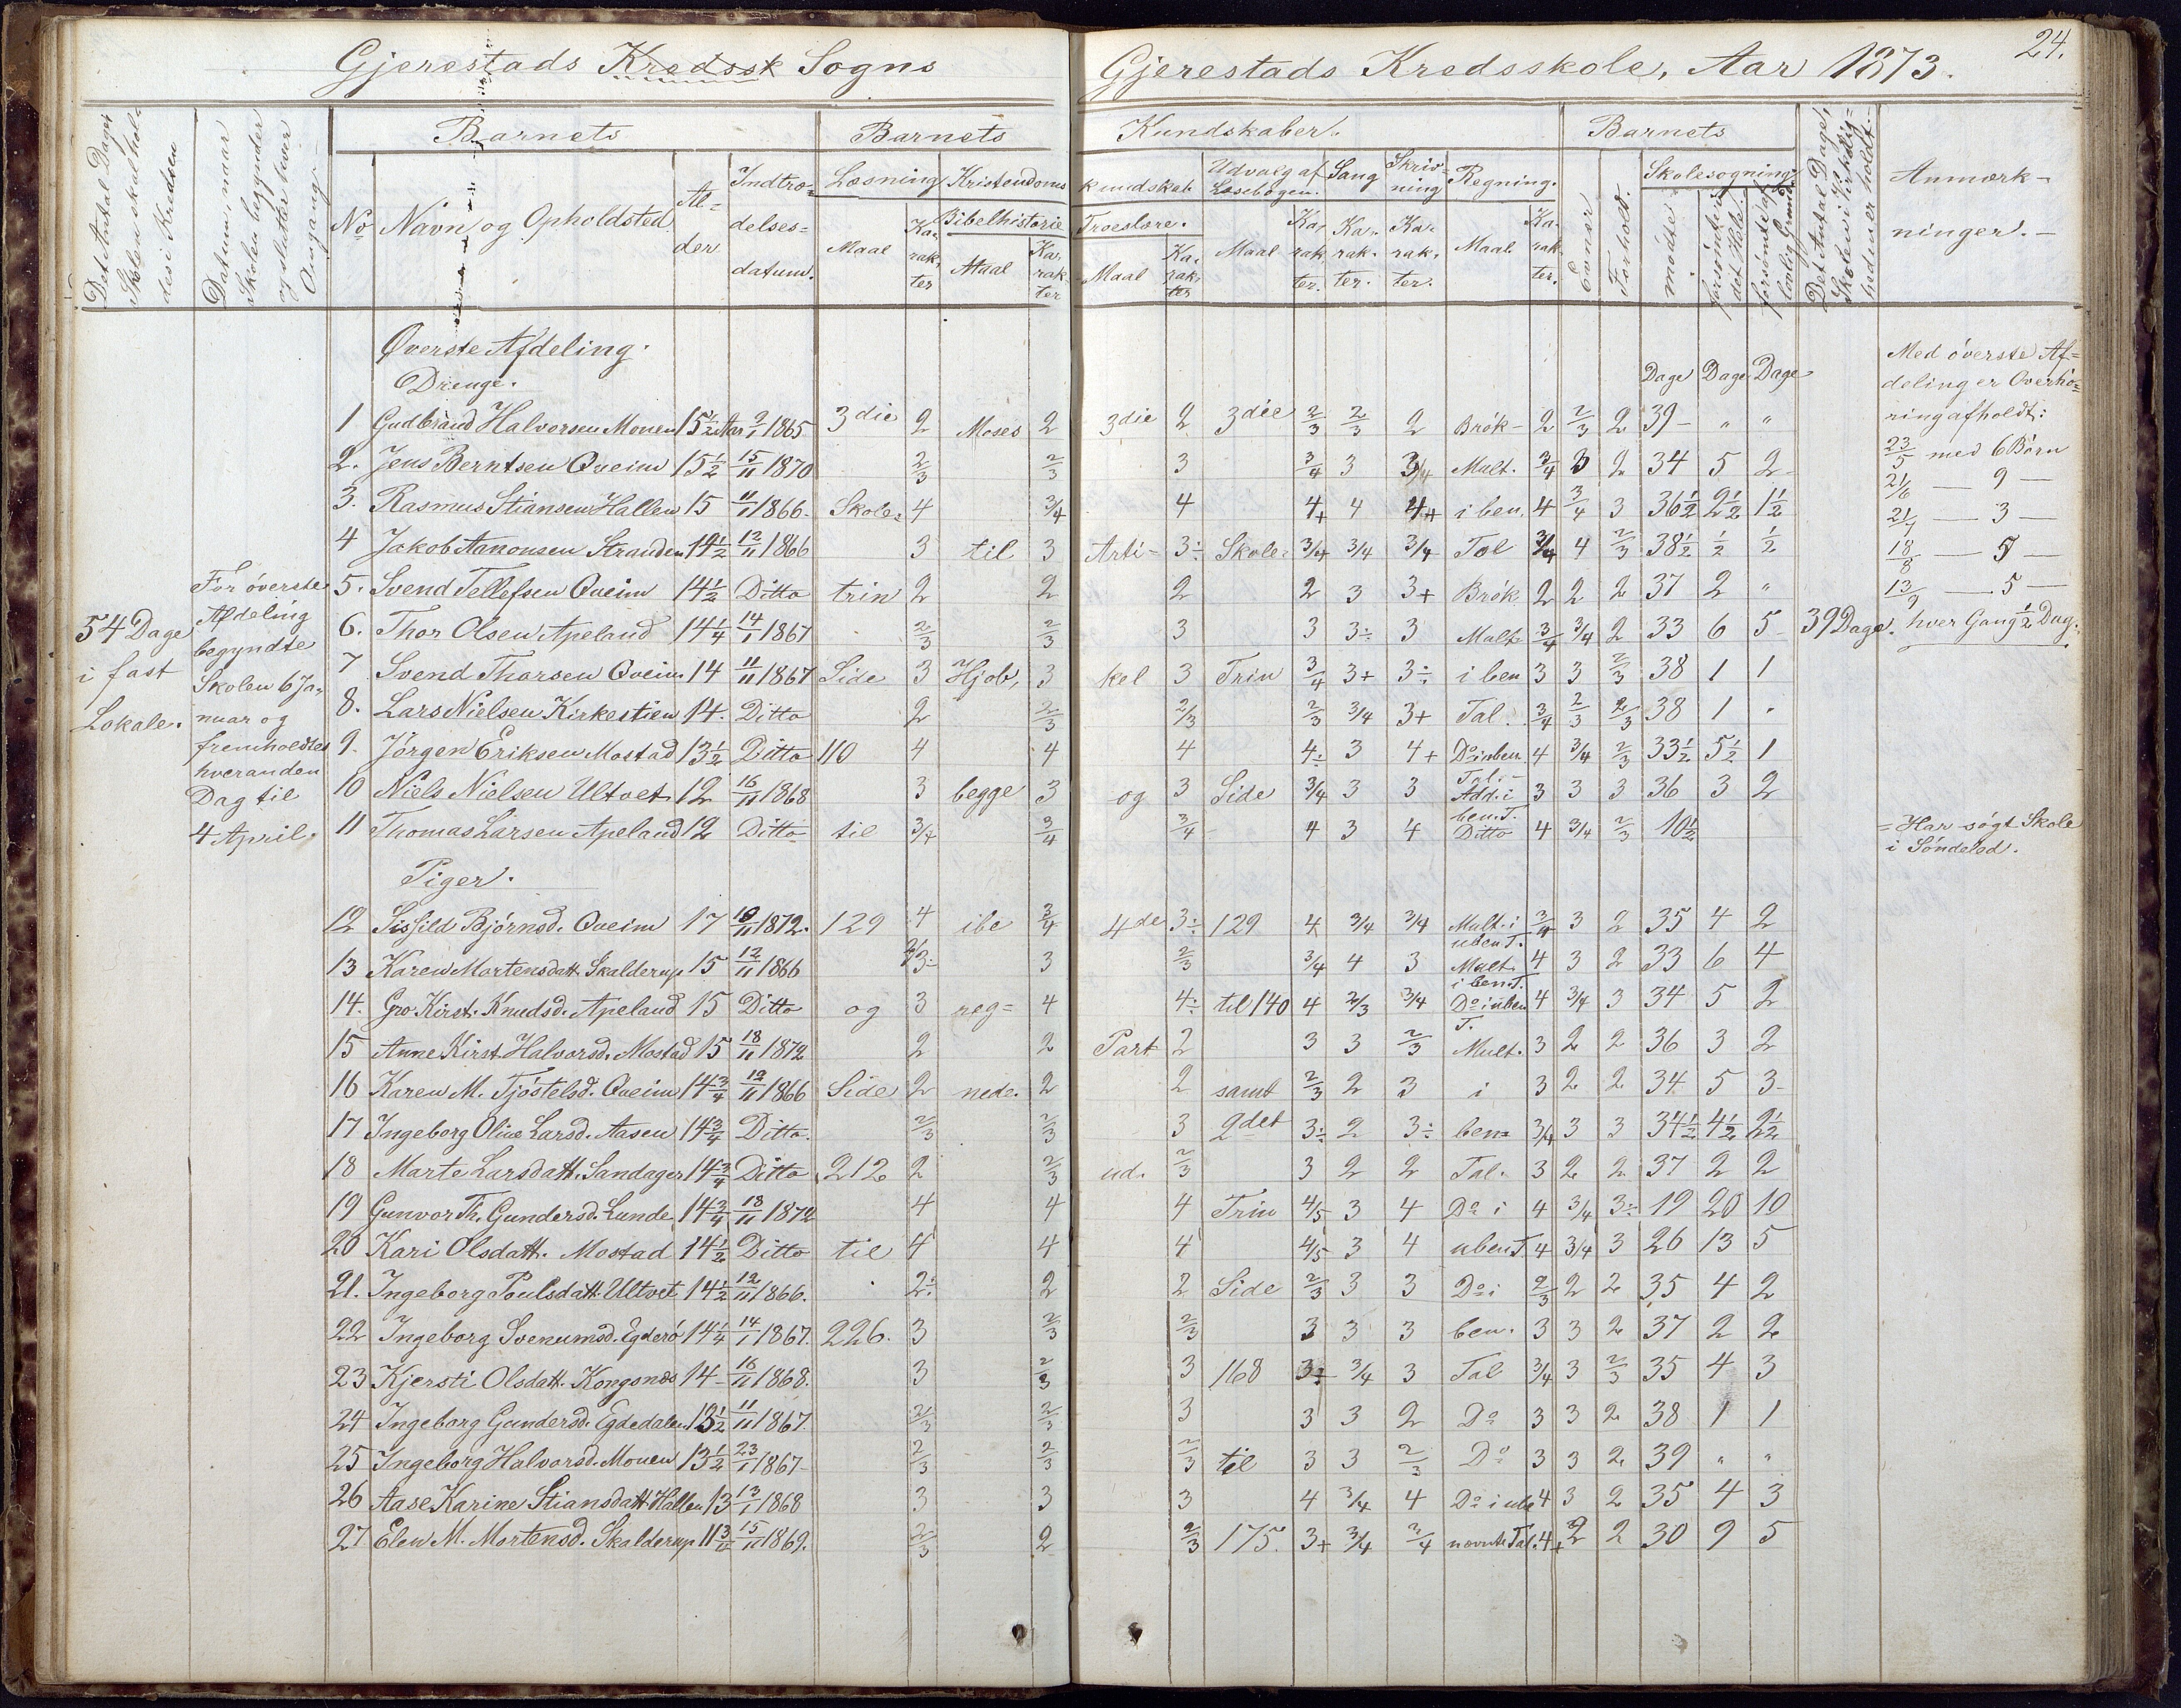 Gjerestads Kredssk Sogns
Det Antal Dage, Skolen skal holdes i Kredsen
Datum, naar Skolen begynder og slutter hver Omgang
Barnets
Barnets
No
Navn og Opholdsted
Alder
Indtrædelsesdatum.
Læsning
Maal
Karakter
Kristendoms
Bibelhistorie
Maal
Karakter
54 Dage
i fast
Lokale.
For øverste
Afdeling
begyndte
Skolen 6 Ja=
nuar og
fremholdtes
hveranden
Dag til
4 April.
Øverste Afdeling.
Drenge.
1 Gudbrand Halvorsen Monen 15 1/2 Aar 9/1 1865 3die 2 Moses 2
2. Jens Berntsen Qveim 15 1/2 15/11 1870 2/3 2/3
3. Rasmus Stiansen Hallen 15 11/1 1866. Skole= 4 3/4
4 Jakob Aanonsen Stranden 14 1/2 12/11 1866 3 til 3
5. Svend Tellefsen Qveim 14 1/2 Ditto trin 2 2
6. Thor Olsen Apeland 14 1/4 14/1 1867 2/3 2/3
7 Svend Thorsen Qveim 14 11/11 1867 Side 3 Hjob, 3
8. Lars Nielsen Kirkestien 14. Ditto 2 2/3
9. Jørgen Eriksen Mostad 13 1/2 Ditto 110 4 4
10 Niels Nielsen Ultvet 12 16/11 1868 3 begge 3
11 Thomas Larsen Apeland 12 Ditto til 3/4 3/4
Piger.
12 Sissild Bjørnsd. Qveim 17 10/11 1872. 129 4 ibe 3/4
13 Karen Martensdatt. Skalderup 15 12/11 1866 3÷ 3
14. Gro Kirst. Knudsd. Apeland 15 Ditto og 3 reg= 4
15 Anne Kirst. Halvorsd. Mostad 15 18/11 1872 2 2
16 Karen M. Tjøstelsd. Qveim 14 3/4 12/11 1866 Side 2 nede. 2
17 Ingeborg Oline Larsd. Aasen 14 3/4 Ditto. 2/3 2/3
18 Marte Larsdatt. Sandager 14 3/4 Ditto 212 2 2/3
19 Gunvor Th. Gundersd. Lunde 14 3/4 18/11 1872 4 4
20 Kari Olsdatt. Mostad 14 1/2 Ditto til 4 4
21. Ingeborg Poulsdatt. Ultvet 14 1/2 12/11 1866. 2÷ 2
22 Ingeborg Svenumsd. Egderø 14 1/4 14/1 1867. 226. 3 2/3
23 Kjersti Olsdatt. Kongsnæs 14 16/11 1868. 3 2/3
24 Ingeborg Gundersd. Egdedalen 13 1/2 11/11 1867. 2/3 2/3
25 Ingeborg Halvorsd. Monen 13 1/2 23/1 1867 2/3 2/3
26 Aase Karine Stiansdatt Hallen 13 13/1 1868 3 3
27 Elen M. Mortensd. Skalderup 11 15/11 1869. 2/3 2
24.
Gjerestads Kredsskole, Aar 1873.
Kundskaber.
Barnets
kundskab
Troeslære.
Maal
Karakter
Udvalg af Læsebogen.
Maal
Karakter.
Sang
Karakter.
Skrivning
Karakter.
Regning.
Maal
Karakter.
Evner
Forhold.
Skolesøgning
mødte
forsømte i det Hele.
forsømte af lovlig Grund
Det Antal Dage, Skolen i Virkeligheden er holdt.
Anmærk-
ninger.
Dage Dage Dage
3die 2 3die 2/3 2/3 2 Brøk- 2 2/3 2 39 " "
3 3/4 3 3/4 Mult. 3/4 3 2 34 5 2
4 4+ 4 4+ i ben. 4 3/4 3 36 1/2 2 1/2 1 1/2
Arti- 3÷ Skole= 3/4 3/4 3/4 Tal 3/4 4 2/3 38 1/2 1/2 1/2
2 2 3 3+ Brøk. 2 2 2 37 2 "
3 3 3÷ 3 Mult 3/4 3/4 2 33 6 5 39 Dage.
kel 3 Trin 3/4 3+ 3÷ i ben 3 3 2/3 38 1 1
2/3 2/3 3/4 3+ Tal. 3/4 2/3 2/3 38 1 "
4 4÷ 3 4+ Do i uben. Tal. 4 3/4 2/3 33 1/2 5 1/2 1
og 3 Side 3/4 3 3 Add. i ben. T. 3 3 3 36 3 2
3/4 4 3 4 Ditto 4 3/4 2/3 10 1/2
4de 3÷ 129 4 3/4 3/4 Mult. i uben T. 3/4 3 2 35 4 2
2/3 3/4 4 3 Mult. i ben. T. 4 3 2 33 6 4
4÷ til 140 4 2/3 3/4 Do i uben T. 4 3/4 3 34 5 2
Part 2 3 3 2/3 Mult. 3 2 2 36 3 2
2 samt 2/3 2 3 i 3 2 2 34 5 3
3 2det 3÷ 2 3÷ ben= 3/4 3 3 34 1/2 4 1/2 2 1/2
ud. 2/3 3 2 2 Tal. 3 2 2 37 2 2
4 Trin 4/5 3 4 Do i 4 3/4 3÷ 19 20 10
4 4/5 3 4 uben T 4 3/4 3 26 13 5
2 Side 2/3 3 3 Do i 2/3 2 2 35 4 2
2/3 3 3 3 ben. 3 3 2 37 2 2
3 168 3÷ 3/4 3 Tal 3/4 3 2/3 35 4 3
3 3 3 2 Do 3 3 2 38 1 1
2/3 til 3 3 2/3 Do 3 3 2 39 " "
3 4 3/4 4 Do i ube 4 3 2 35 4 3
2/3 175. 3+ 3/4 3/4 nævnte Tal. 4+ 2 2 30 9 5
Med øverste Af=
deling er Overhø=
ring afholdt:
23/5 med 6 Børn
21/6 — 9 —
21/7 — 3 —
18/8 — 5 —
13/9 — 5 —
hver Gang 1/2 Dag.
= Har søgt Skole
i Søndeled.